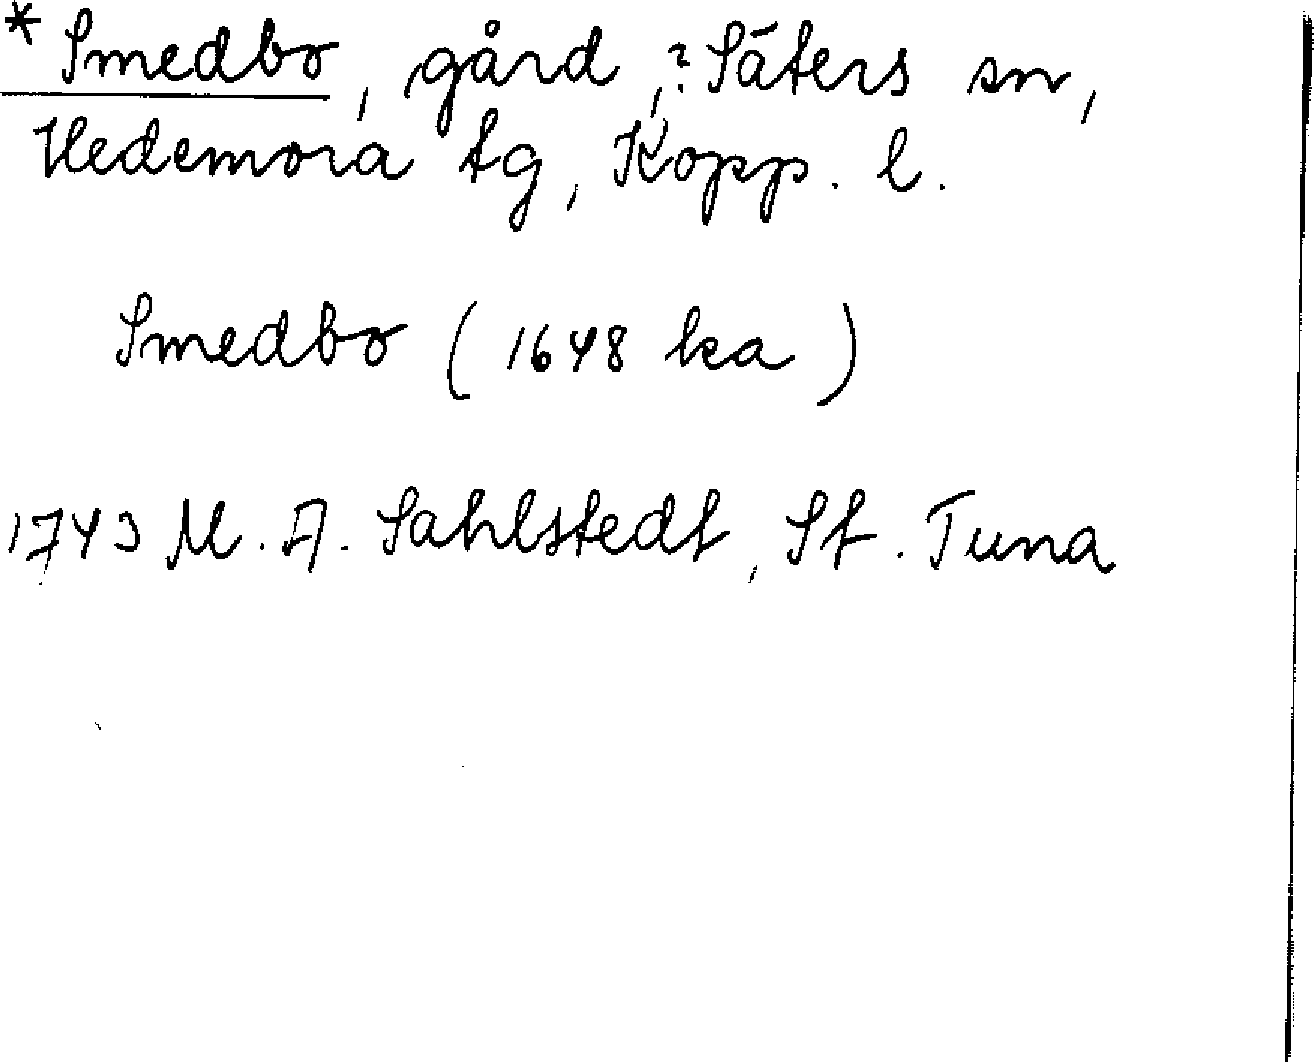 * Smedbo, gård, ? Säters sn,
Hedemora tg, Kopp. l.
Smedbo (1648 ka)
1743 M. A. Sahlstedt, St. Tuna